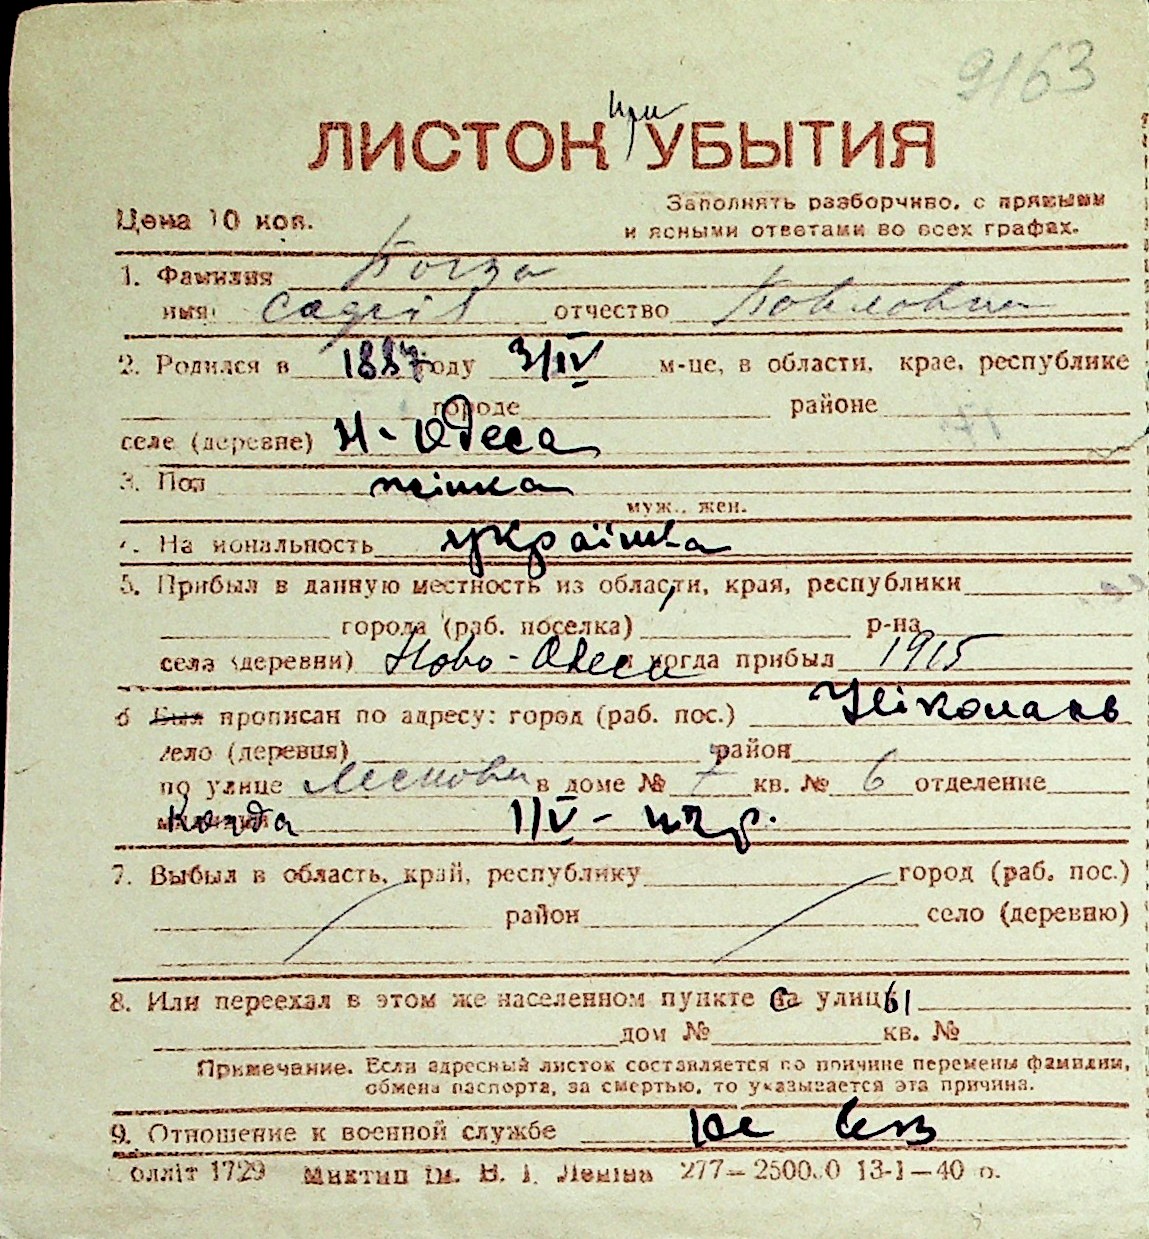 9163
при
ЛИСТОК УБЫТИЯ
Цена 10 коп.
Заполнять разборчиво, с прямыми
и ясными ответами во всех графах.
1. Фамилия
имя отчество Павловна
2. Родился в 1887 году 3/IV м-це, в области, крае, республике
городе районе
селе (деревне) Н-Одеса
3. Пол жінка
муж., жен.
4. На иональность українка
5. Прибыл в данную местность из области, края, республики
города (раб. поселка) р-на
села (деревни) Ново-Одеса и когда прибыл 1915
6 Был прописан по адресу: город (раб. пос.) Ніколаев
село (деревня) район
по улице в доме № 7 кв. № 6 отделение
милиции Когда 1/V-
7. Выбыл в область, край, республику город (раб. пос.)
район село (деревню)
8. Или переехал в этом же населенном пункте на улицу 61
дом № кв. №
Примечание. Если адресный листок составляется по причине перемены фамилии,
обмена паспорта, за смертью, то указывается эта причина.
9. Отношение к военной службе не
олліт 1729 Миктип ім. В. І. Леніна 277—2500.0 13-1—40 р.